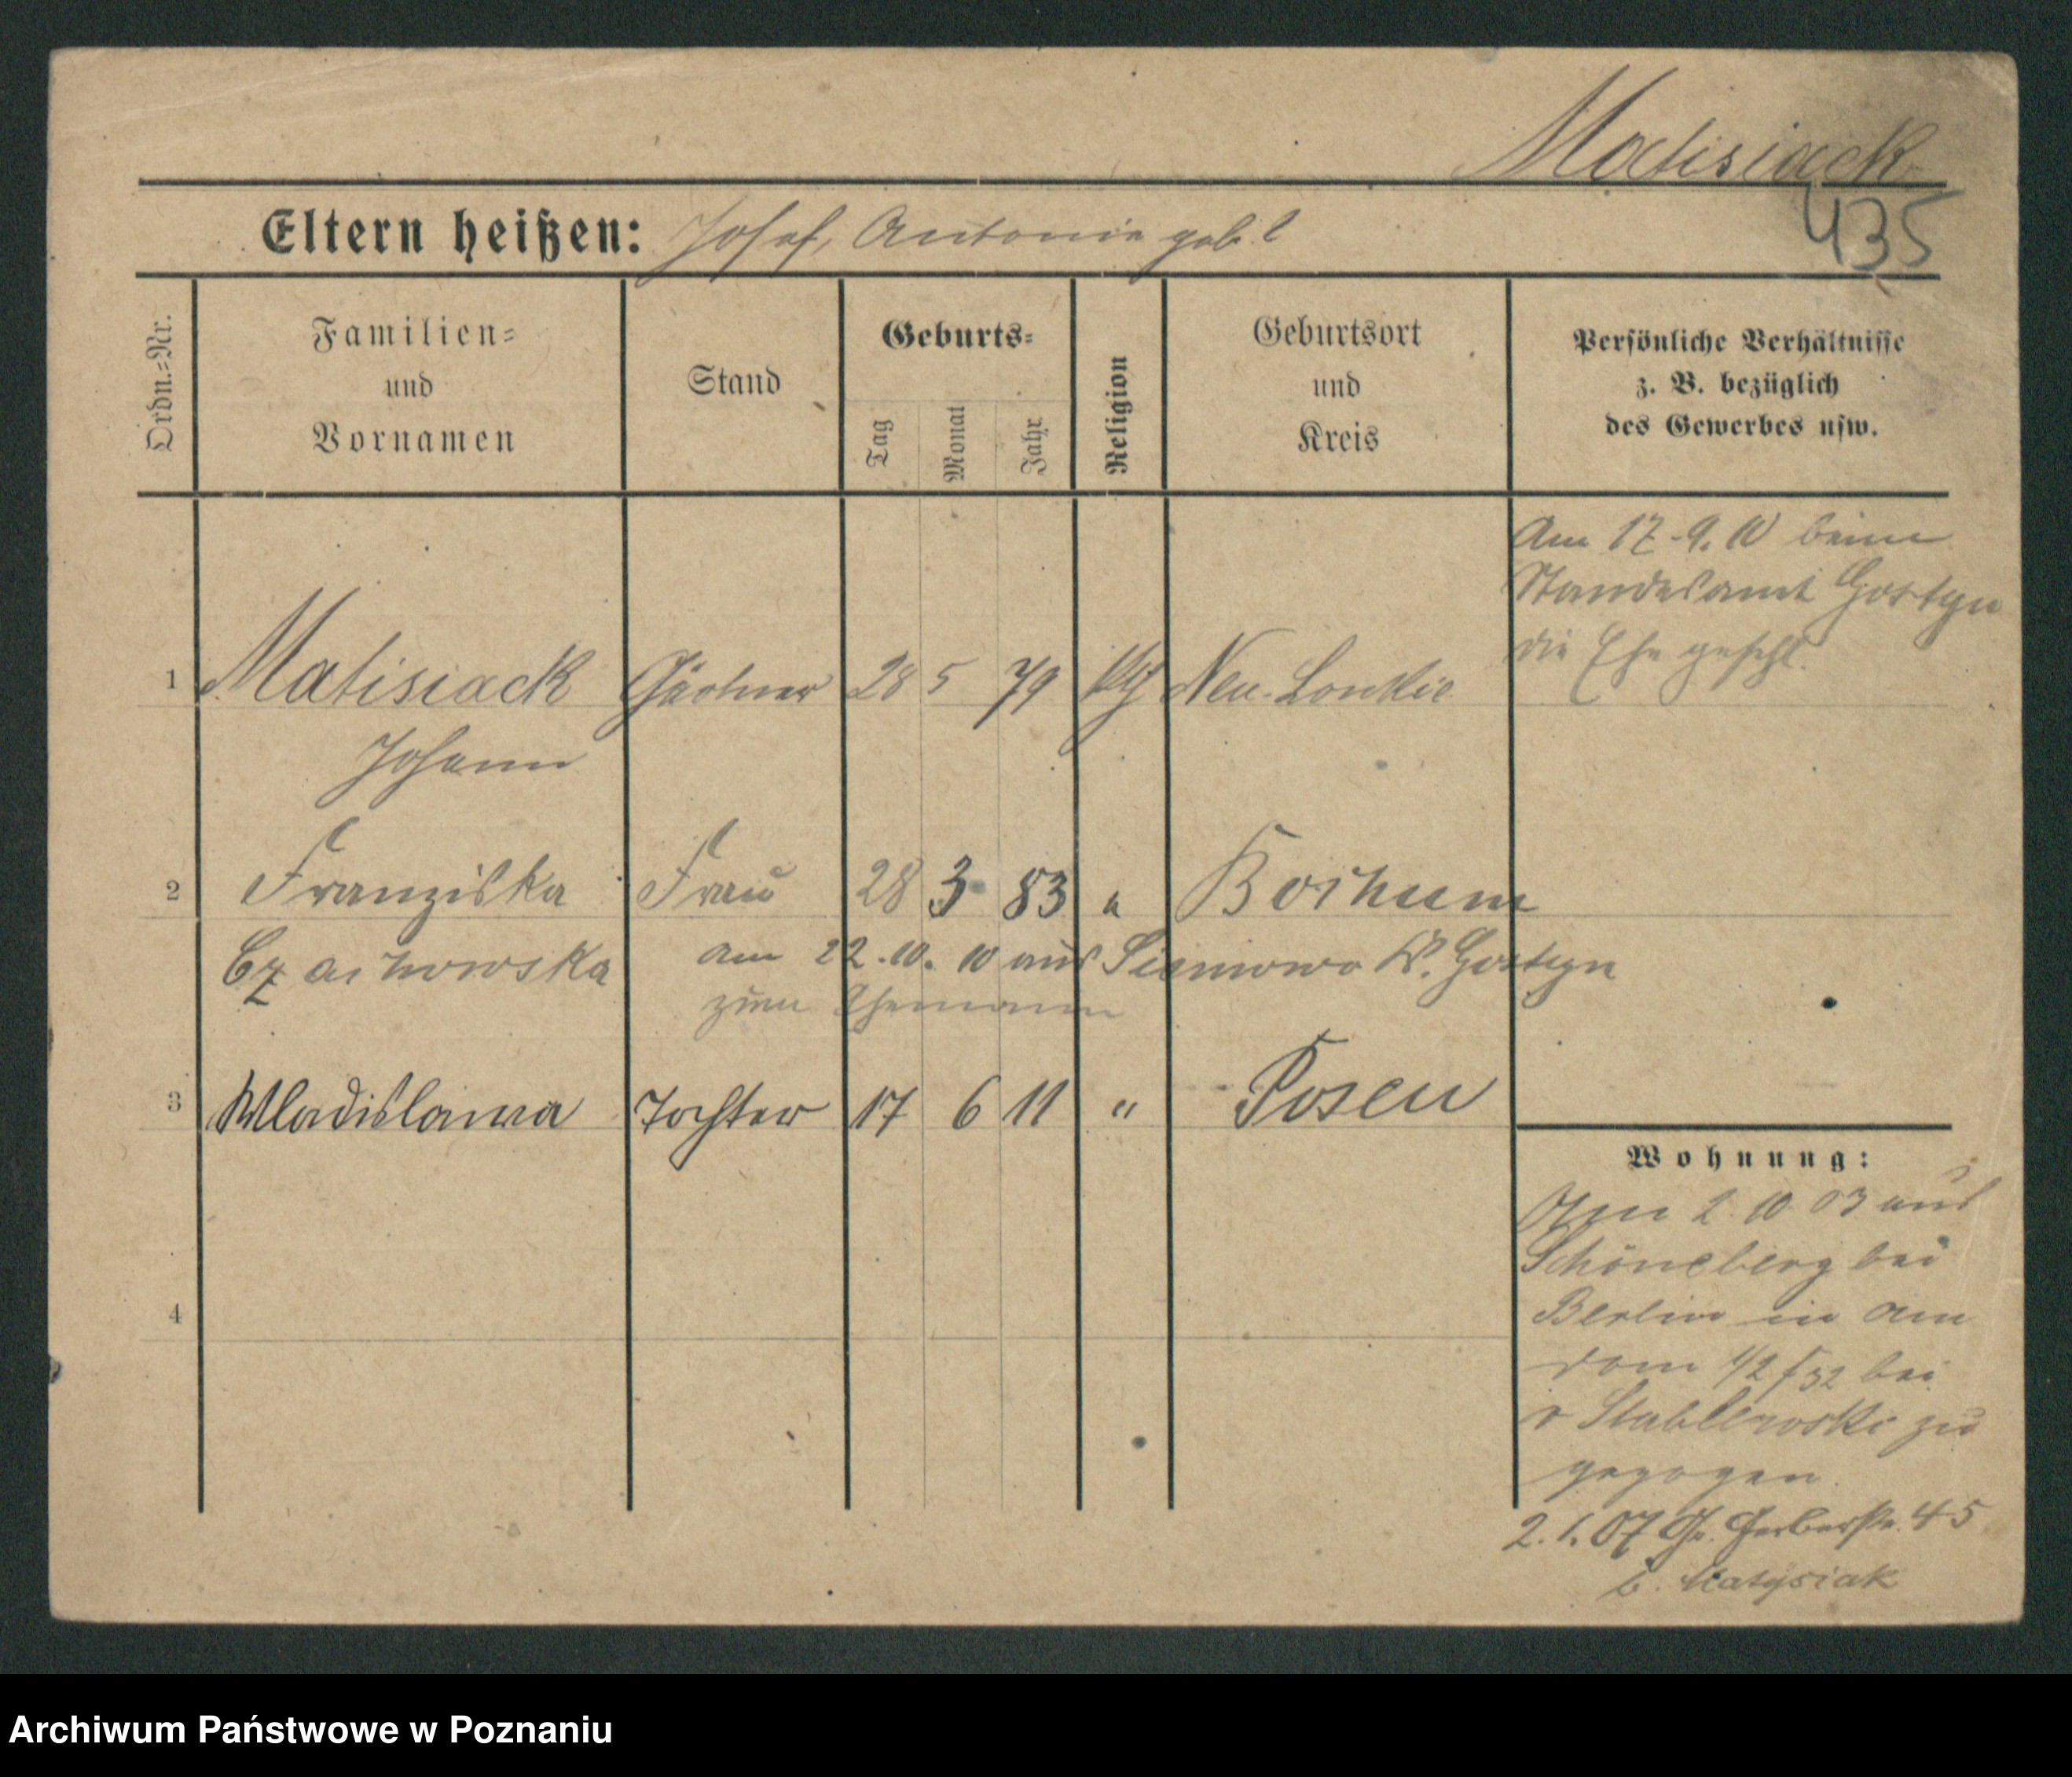 Matisiack
435
Eltern heißen: Josef, Antonie geb. ?
Ordn.=Nr.
Familien=
und
Vornamen
Stand
Geburts=
Tag
Monat
Jahr
Religion
Geburtsort
und
Kreis
Persönliche Verhältnisse
z. B. bezüglich
des Gewerbes usw.
Am 17.9.10 beim
Standesamt Gostyn
die Ehe geschl.
1 Matisiack Gärtner 28 5 79 kth Neu-Lonkie
Johann
2 Franziska Frau 28 3 83 " Bochum
Czachowska am 22.10.10 aus Siemowo Kr. Gostyn
zum Ehemann
3 Wladislawa Tochter 17 6 11 " Posen
4
Wohnung:
Am 2.10 03 aus
Schöneberg bei
Berlin in am
dom 1/2 bei
v Stablewski zu
gezogen.
2.1.07 Gr. Gerberstr. 45
b. Matysiak
Archiwum Państwowe w Poznaniu